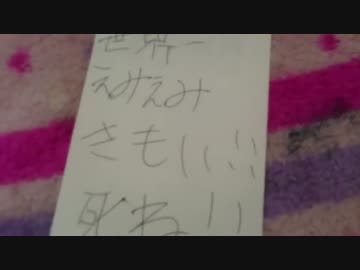 世界一
えみえみ
きもい!!
死ね!!